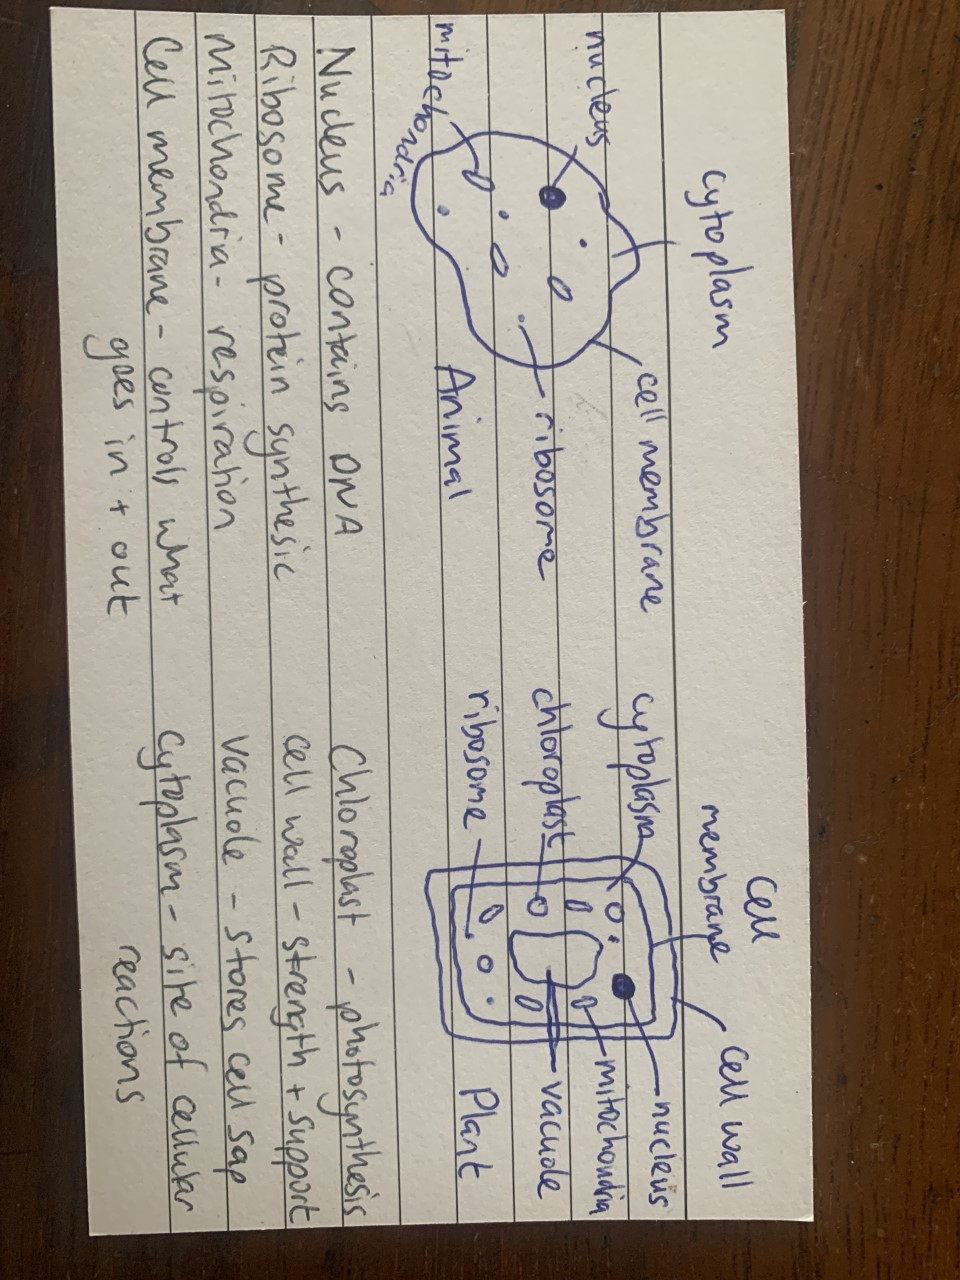 cytoplasm
nucleus
cell membrane
ribosome
mitochondria
Animal
Cell
membrane
cell wall
cytoplasm
nucleus
chloroplast
mitochondria
vacuole
ribosome
Plant
Nucleus - contains DNA
Ribosome - protein synthesic
Mitochondria - respiration
Cell membrane - controls what
goes in + out
Chloroplast - photosynthesis
cell wall - strength + support
vacuole - stores cell sap
Cytoplasm - site of cellular
reactions